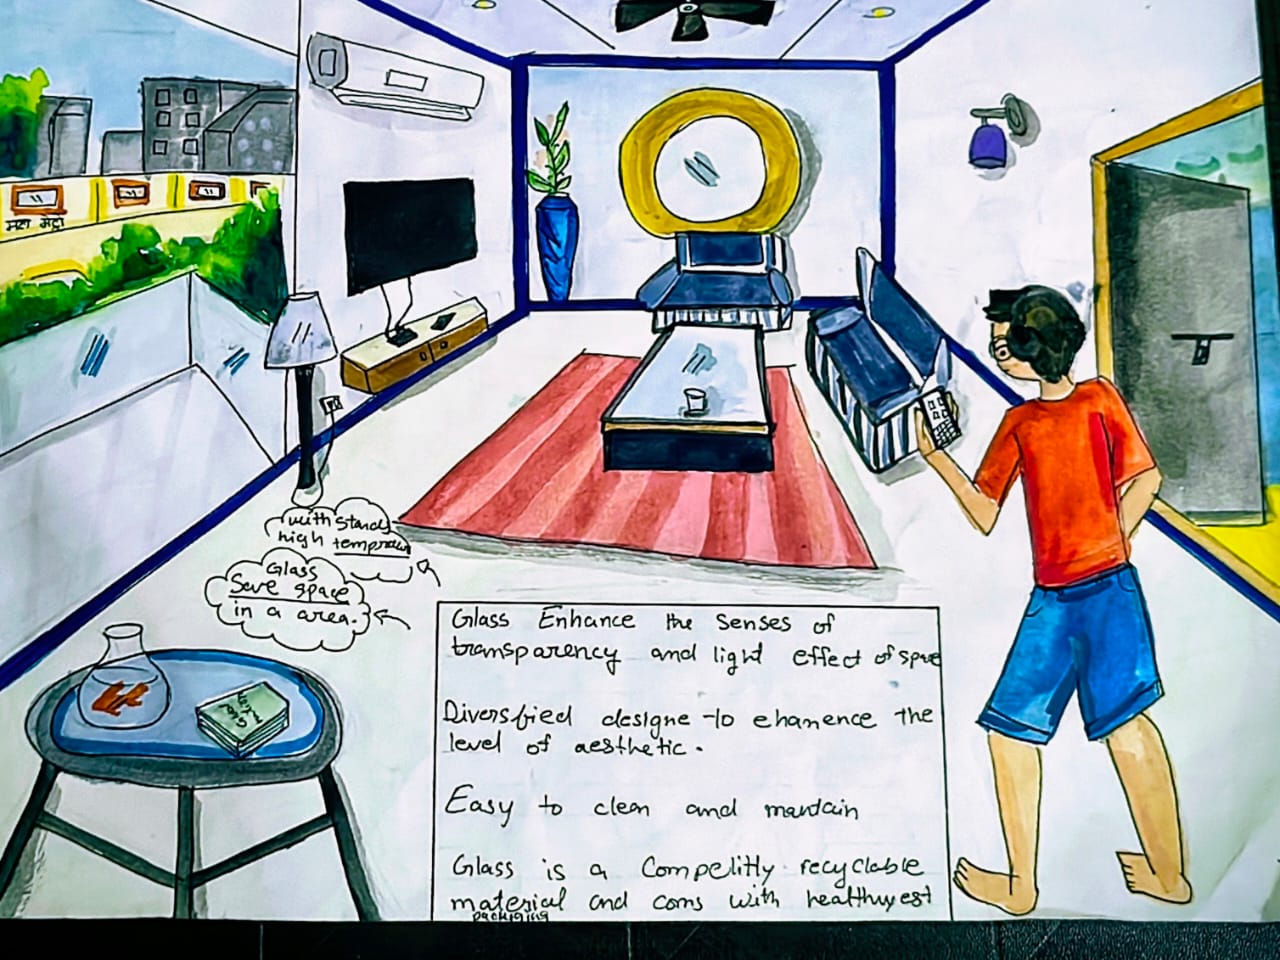 मेट्रो मेट्रो
with stands
high
Glass
Save space
in a area.
Glass Enhance the senses of
transparency and light effect of space
Diversfied designe to ehanence the
level of aesthetic.
Easy to clean and mantain
Glass is a Compelitly recyclable
material and coms with healthwyest
packiging